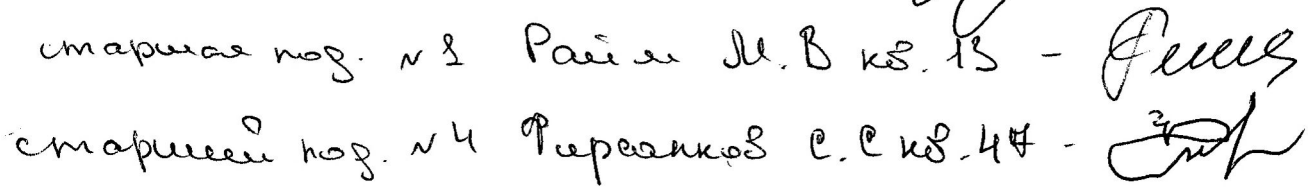 старшая под. №1 Райм М.В кв. 13 -
старший под. №4 Фирсанков С.С кв. 47 -